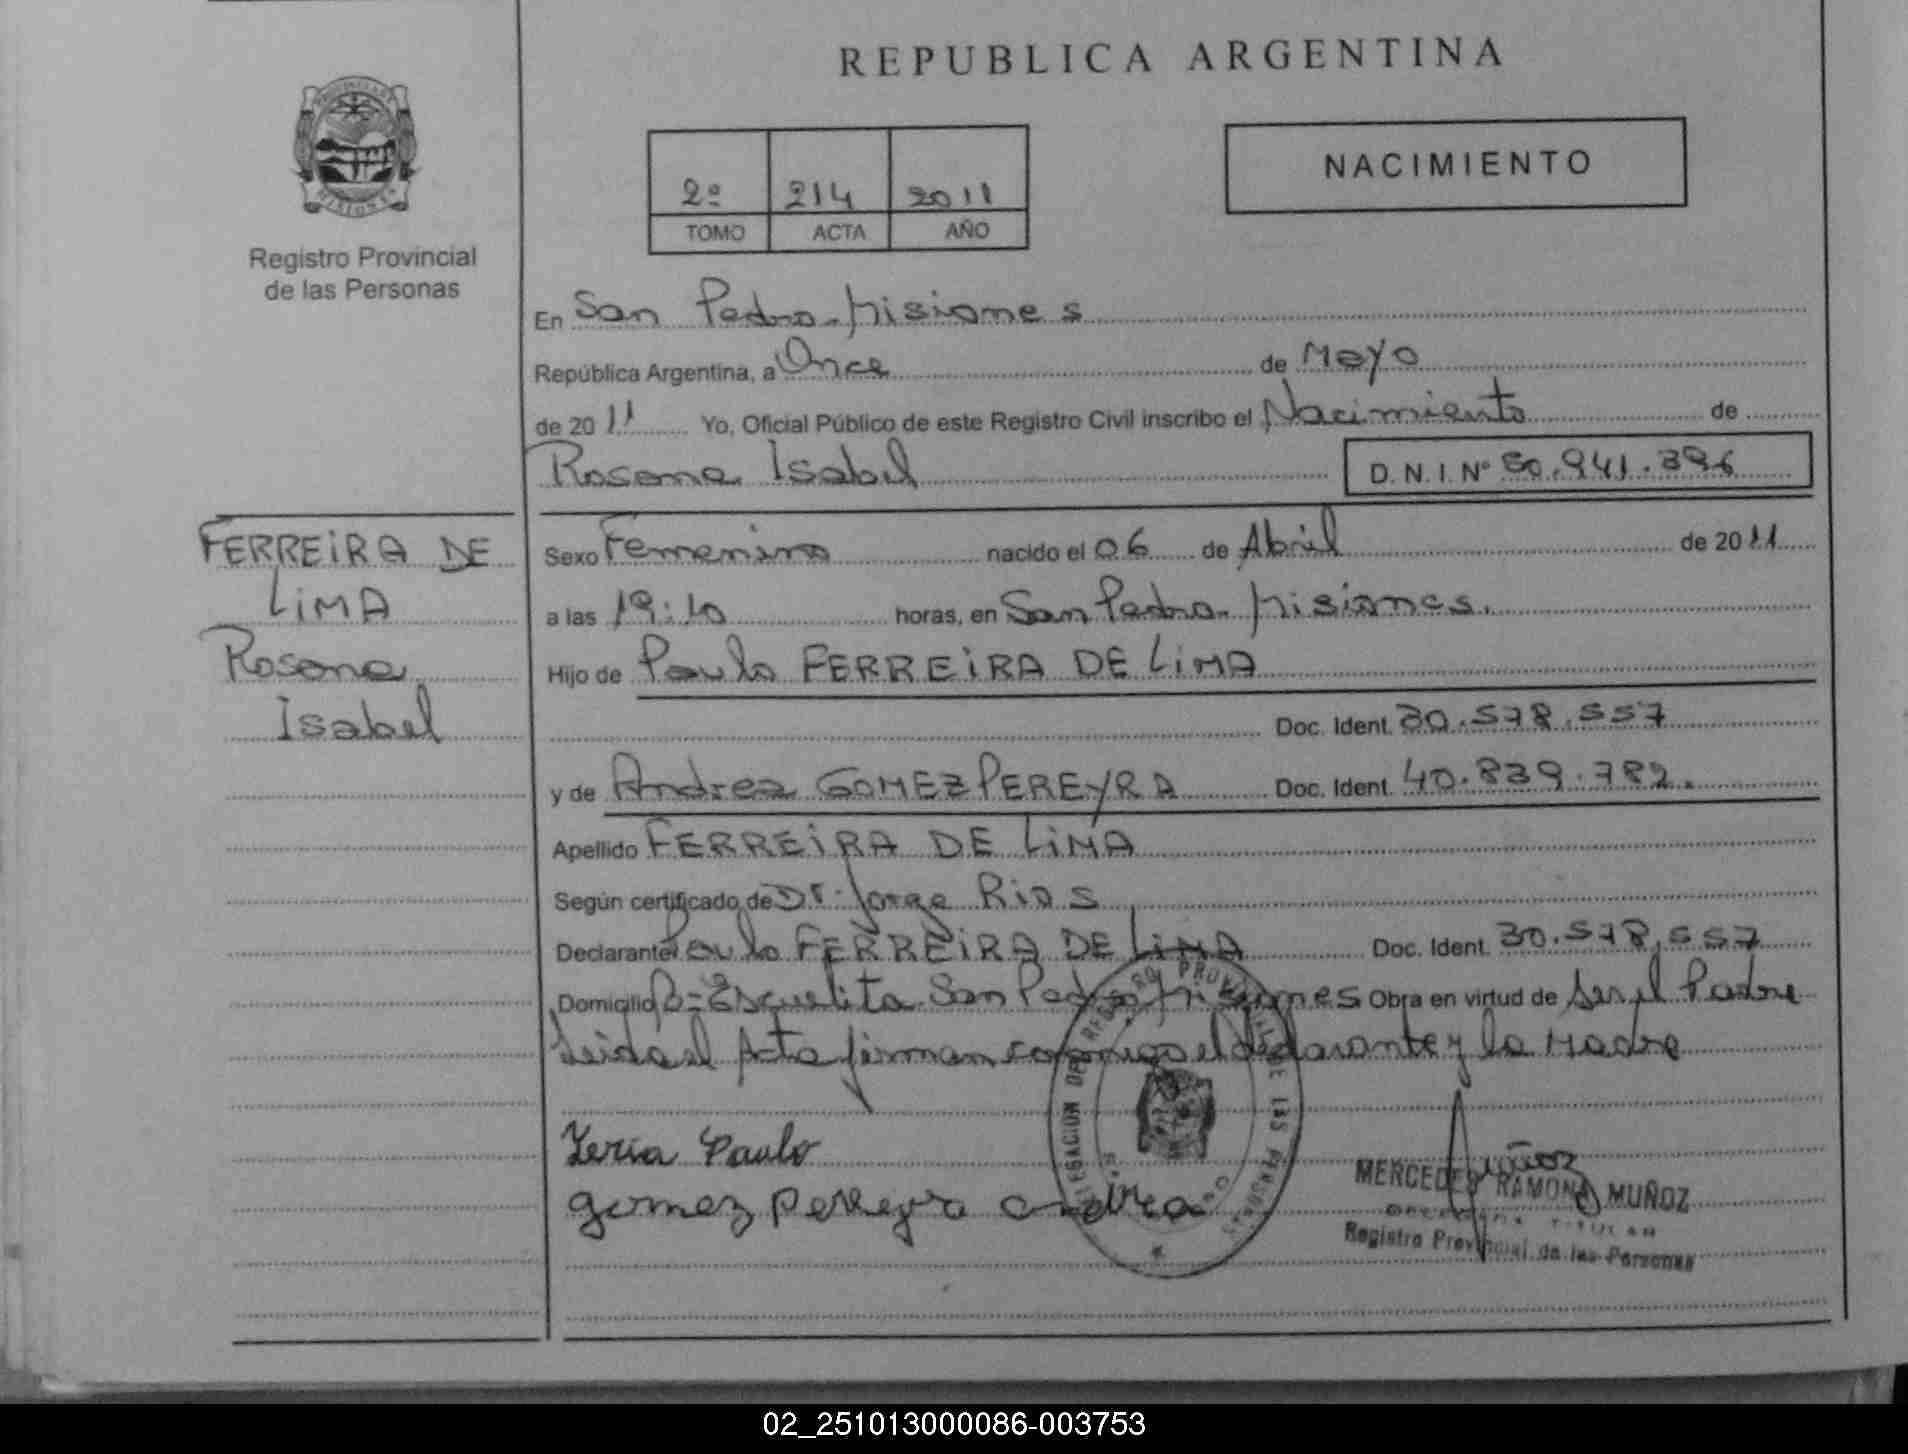 REPUBLICA ARGENTINA
NACIMIENTO
2º 214 2011
TOMO ACTA AÑO
Registro Provincial
de las Personas
En San Pedro - Misiones
República Argentina, a Once de Mayo
de 2011 Yo, Oficial Público de este Registro Civil inscribo el Nacimiento de
Rosana Isabel D.N.I. Nº 50.941.396
FERREIRA DE
LIMA
Rosana
Isabel
Sexo Femenino nacido el 06 de Abril de 2011
a las 19:10 horas, en San Pedro - Misiones.
Hijo de Paulo FERREIRA DE LIMA
Doc. Ident. 30.578.557
y de Andrea GOMEZ PEREYRA Doc. Ident. 40.839.782.
Apellido FERREIRA DE LIMA
Según certificado de Dr. Jorge Rios
Declarante Paulo FERREIRA DE LIMA Doc. Ident. 30.578.557
Domicilio Bº Escuelita San Pedro Misiones Obra en virtud de Ser el Padre
Leida el Acta firman conmigo el declarante y la Madre
Paulo
gomez Perreyra andrea
DELEGACION DEL REGISTRO PROVINCIAL DE LAS PERSONAS
MERCEDES RAMONA MUÑOZ
Registro Provincial de las Personas
02_251013000086-003753